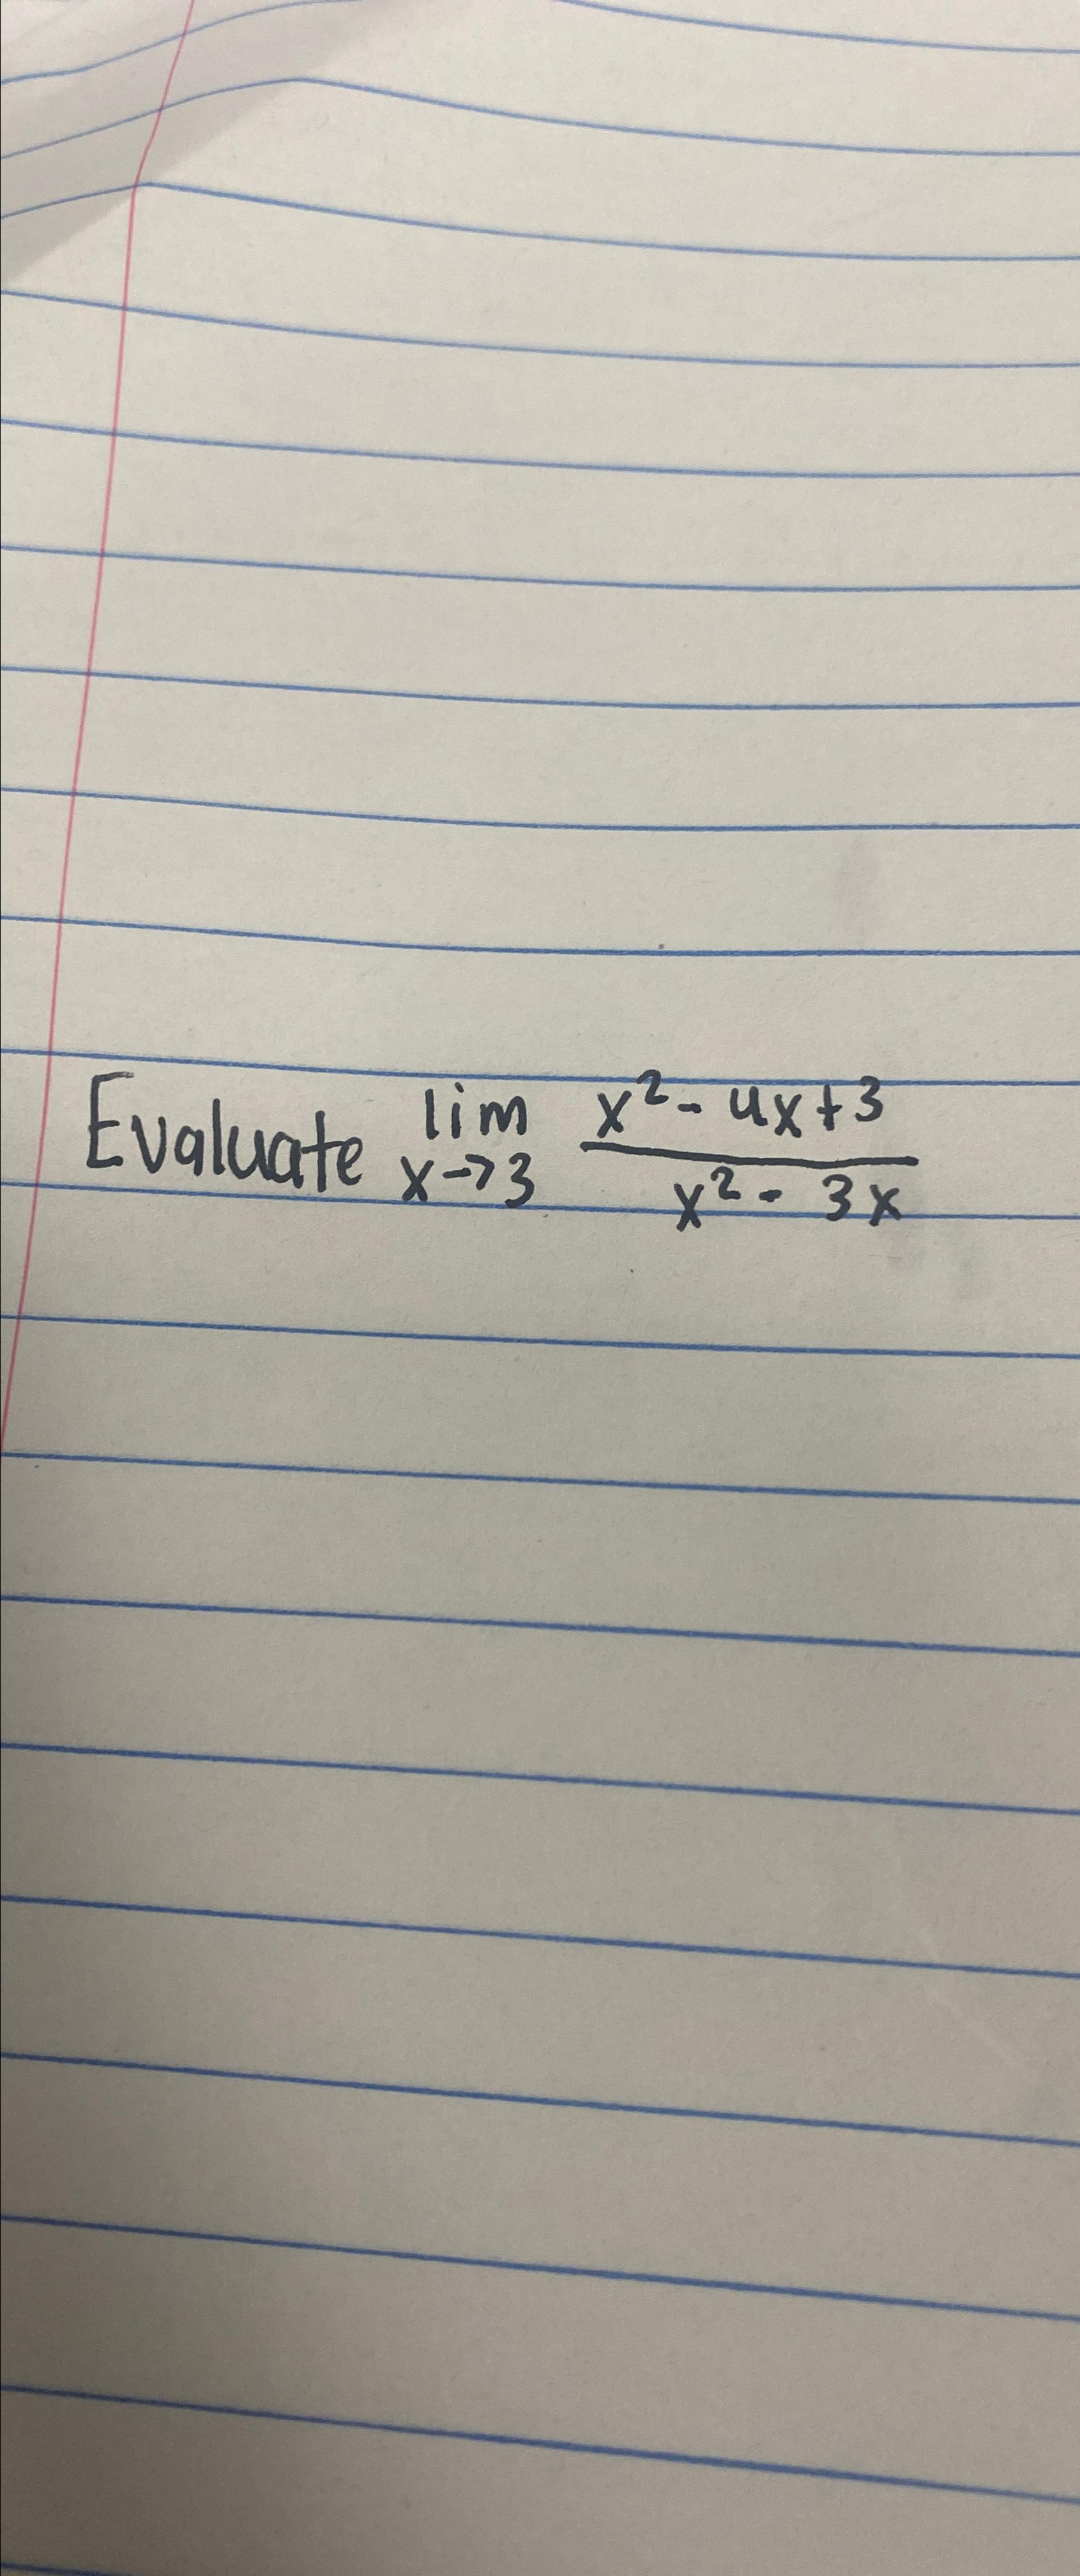 Evaluate lim x→3 (x² - 4x + 3)/(x² - 3x)